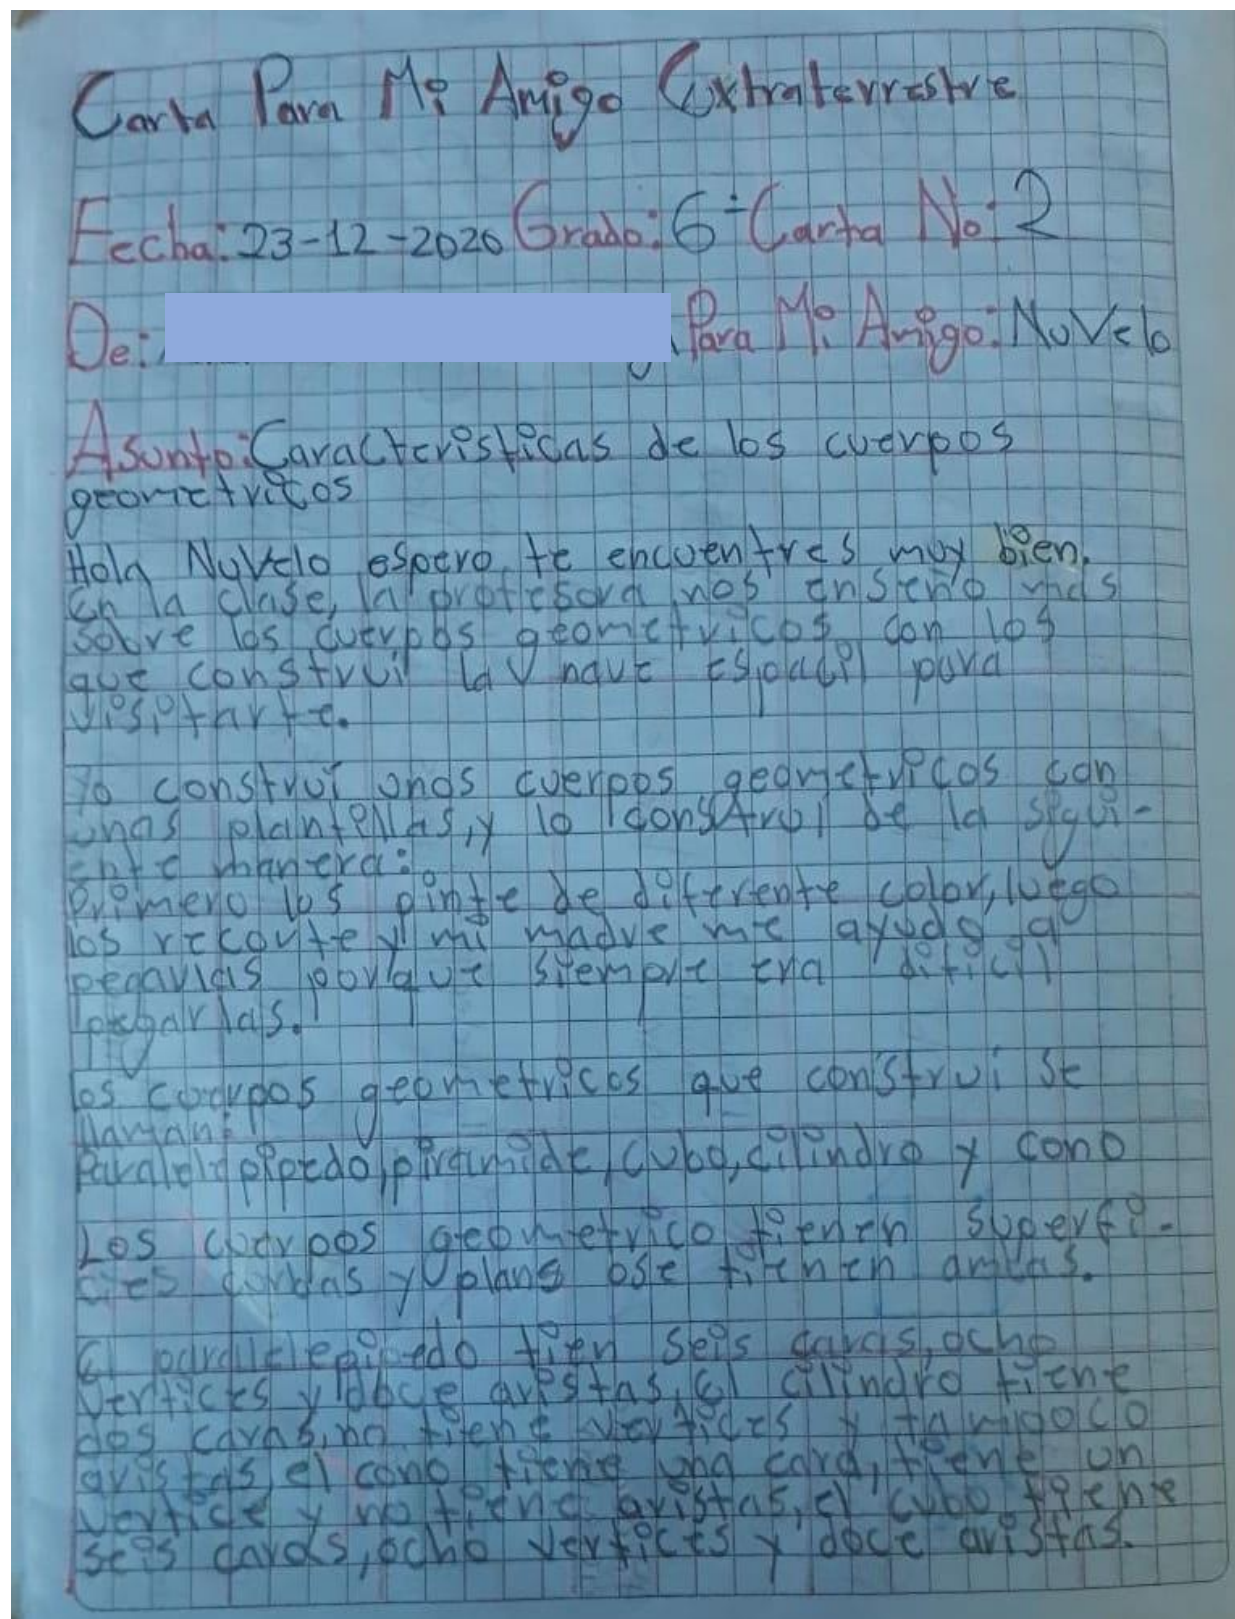 Carta Para Mi Amigo Extraterrestre
Fecha: 23-12-2020 Grado: 6- Carta No: 2
De: Para Mi Amigo: NuVelo
Asunto: Caracteristicas de los cuerpos
geometricos
Hola NuVelo espero te encuentres muy bien.
En la clase, la profesora nos enseño mas
sobre los cuerpos geometricos con los
que construi la nave espacial para
visitarte.
Yo construí unos cuerpos geometricos con
unas plantillas, y lo construi de la sigui-
ente manera:
Primero los pinte de diferente color, luego
los recorte y mi madre me ayudo a
pegarlas porque siempre era dificil
pegarlas.
los cuerpos geometricos que construi se
llaman:
Paralelepipedo, piramide, cubo, cilindro y cono
Los cuerpos geometrico tienen superfi-
cies curbas y plans ose tienen ambas.
El paralelepipedo tien seis caras, ocho
vertices y doce aristas, el cilindro tiene
dos caras, no tiene vertices y tampoco
aristas, el cono tiene una cara, tiene un
vertice y no tiene aristas, el cubo tiene
seis caras, ocho vertices y doce aristas.